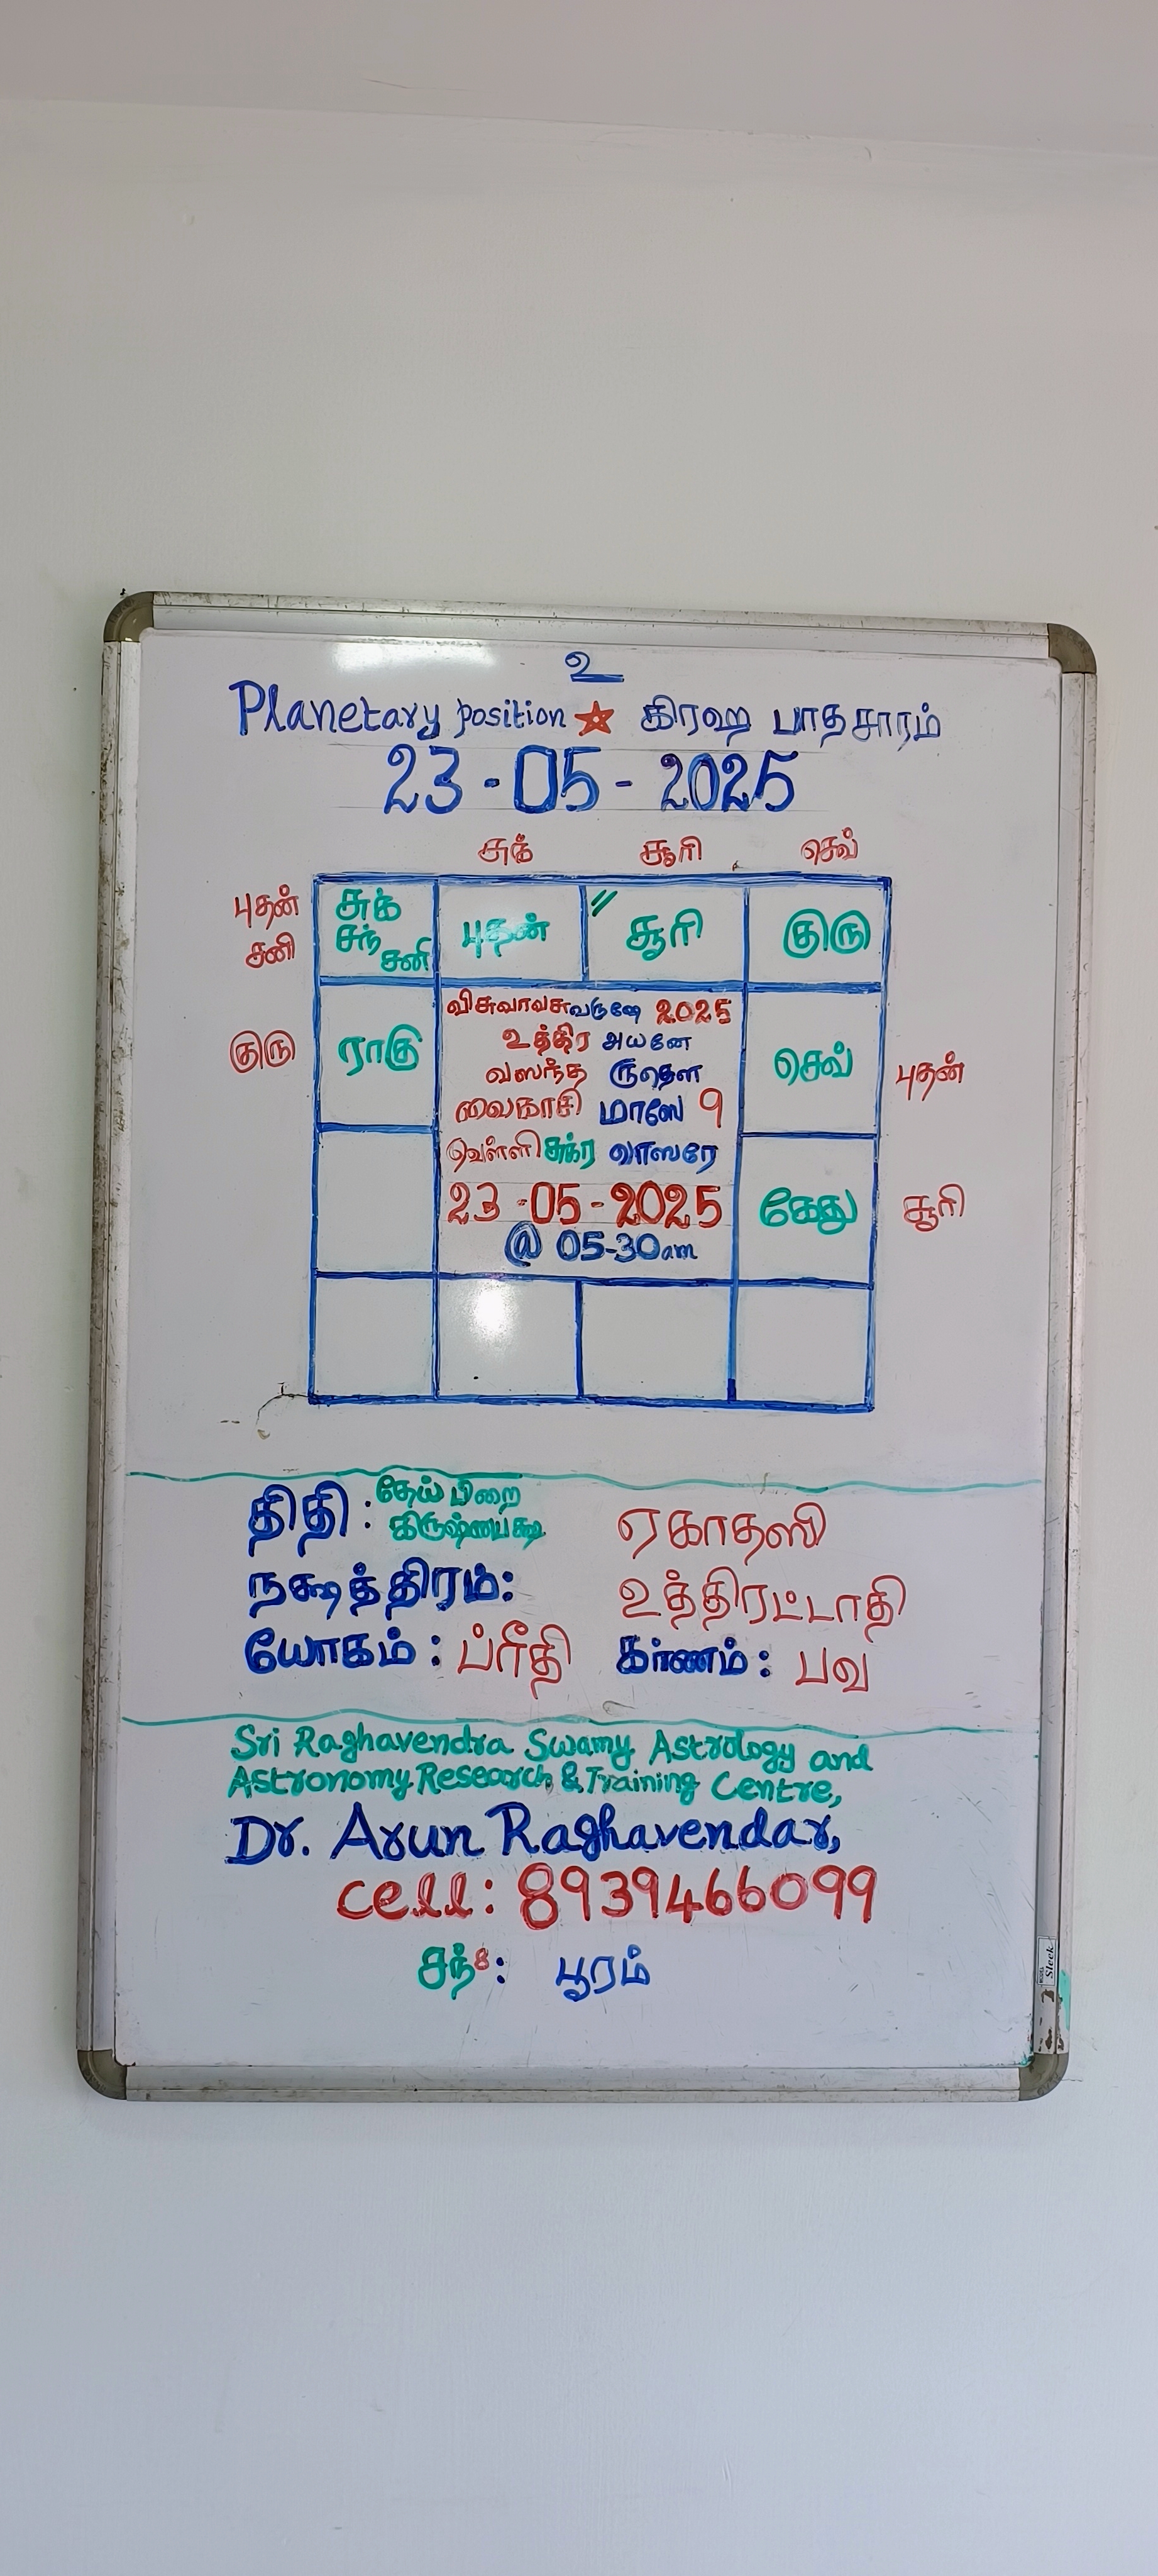 உ
Planetary position ★ கிரஹ பாதசாரம்
23-05-2025
சுக் சூரி செவ்
புதன் சனி
சுக் சந் சனி
புதன்
சூரி
குரு
குரு
ராகு
விசுவாவசுவருஷே 2025
உத்திர அயனே
வஸந்த ருதௌ
வைகாசி மாஸே 9
வெள்ளி சுக்ர வாஸரே
23-05-2025
@ 05-30am
செவ்
புதன்
கேது
சூரி
திதி : தேய் பிறை கிருஷ்ணபக்ஷ ஏகாதஸி
நக்ஷத்திரம்: உத்திரட்டாதி
யோகம் : ப்ரீதி கர்ணம் : பவ
Sri Raghavendra Swamy Astrology and
Astronomy Research & Training Centre,
Dr. Arun Raghavendar,
cell: 8939466099
சந்8: பூரம்
Sleek